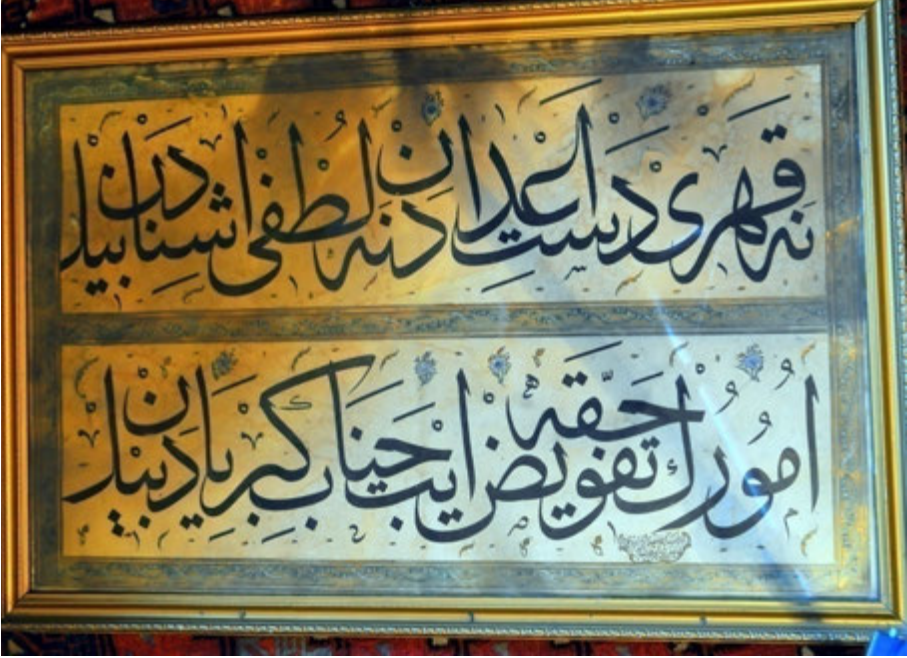 نه قهری دست اعدادن نه لطفی اشنادن بیل
امورك حقه تفویض ایت جناب کبریادن بیل